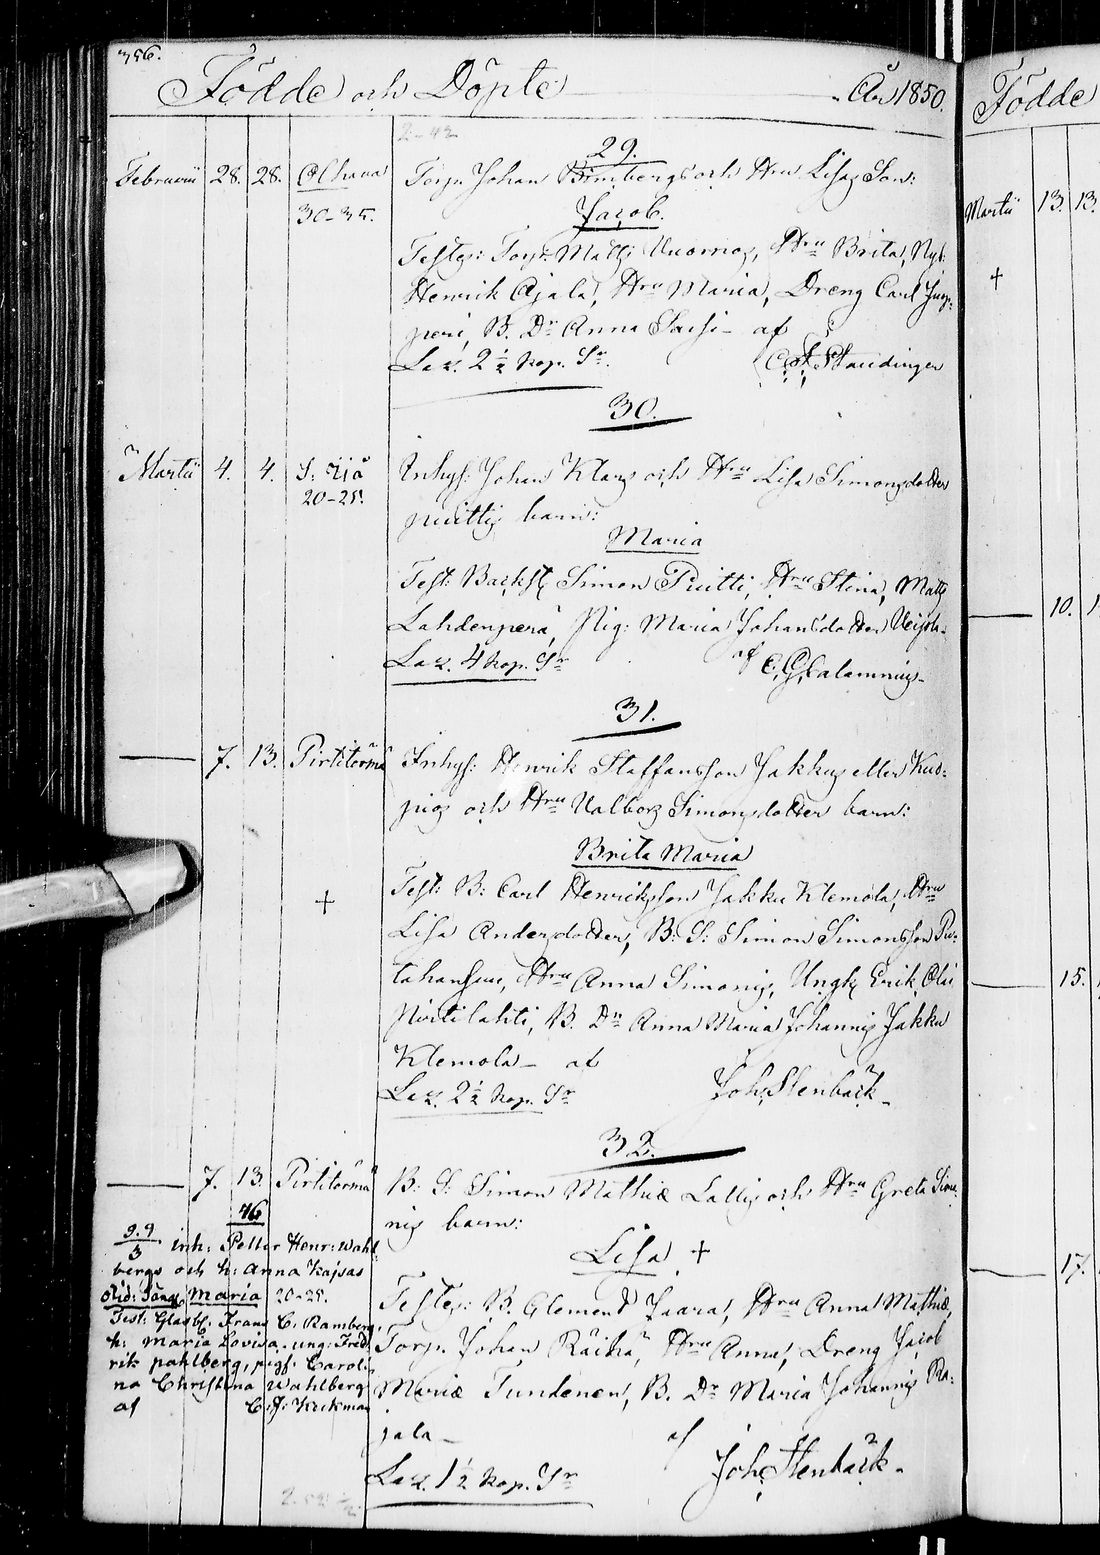 356.
Födde och Döpte År 1850.
29.
Februarii 28. 28. Olhava Torp. Johan Brimberg och Hru Lisas Son:
30-35. Jacob.
Testes: Torp: Matts Vuorno, Hru Brita, Nyb:
Henrik Ojala, Hru Maria, Dreng Carl Jun-
peri, B. Dr Anna Saisi- af
Laz. 2 1/2 kop. Sr. C. F. Staudinger
30.
Martii 4. 4. S: Ijå Inhys: Johan Klas och Hru Lisa Simonsdotter
20-25. barn:
Maria
Test: Backst. Simon Puitti, Hru Stina, Matts
Lahdenperä, Pig: Maria Johansdotter Veijola-
Laz. 4 kop. Sr af C. G. Calamnius-
31.
7. 13. Pirtitörmä Inhys: Henrik Staffansson Jakkus eller Kus-
och Hru Valborg Simonsdotter barn:
Brita Maria
Test: B: Carl Henriksson Jakku Klemola, Hru
+
Lisa Andersdotter, B: S: Simon Simonsson Pu-
Hru Anna Simonis, Ungk. Erik Olai
Pirtilahti, B. Dr Anna Maria Johannis Jakku
Klemola- af
Laz. 2 1/2 kop. Sr Joh. Stenbäck-
32.
7. 13. Pirtitörmä B: S: Simon Mathiæ Lallis och Hru Greta Simo-
nis barn:
Lisa +
Testes: B. Clement Jaara, Hru Anna Mathiæ,
Torp. Johan Räihä, Hru Anna, Dreng Jacob
Mariæ Tundenen, B. Dr Maria Johannis Ra-
jala- af
Laz. 1 1/2 kop. Sr Joh. Stenbäck-
46
9. 9.
3 inh: Petter Henr: Wahl-
bergs och h: Anna Kajsas
Maria 20-25.
Test: Glasbl: Frans C. Ramberg,
h: Maria Lovisa, ung: Fred-
rik pahlberg, pigf: Caroli-
na Christina Wahlberg
af C. J: Krekman
Födde
Martii 13. 13.
+
10.
15.
17.